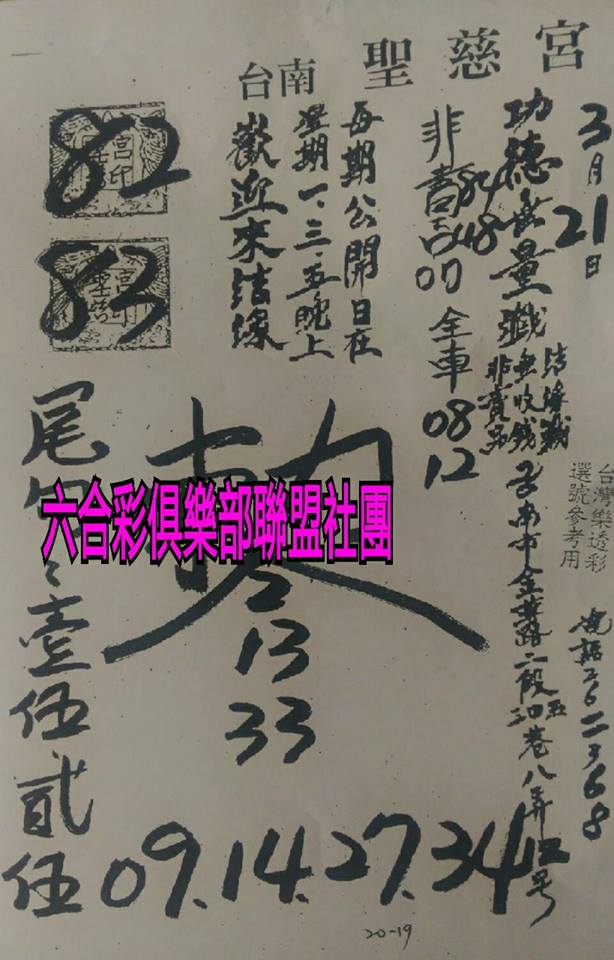 台南 聖慈宮
3月21日
功德無量
結緣
無收錢
非賣品
台灣樂透彩
選號參考用
台南市金華路二段
巷八弄12号
電話2612368
非
84
48
全車 08 12
每期公開日在
星期一、三、五晚上
歡迎來結緣
82
83
宮印
宮印
尾
壹伍
貳伍
六合彩俱樂部聯盟社團
2
13
33
09.14.27.34
20-19